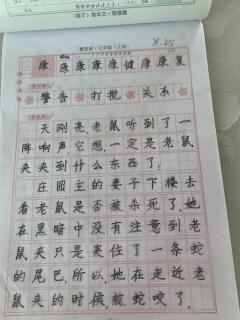 8.25
康 康 康 康 健 康 康 复
警 告 打 搅 关 系
天刚亮老鼠听到了一鼠
阵响声它想一定是老鼠
夹夹到什么东西了
庄园主的妻子下楼去
看老鼠是否被杀死了她
在黑暗中没有注意到老
鼠夹只是夹住了一条蛇
的尾巴,所以,她在走近老
鼠夹的时候被蛇咬了.